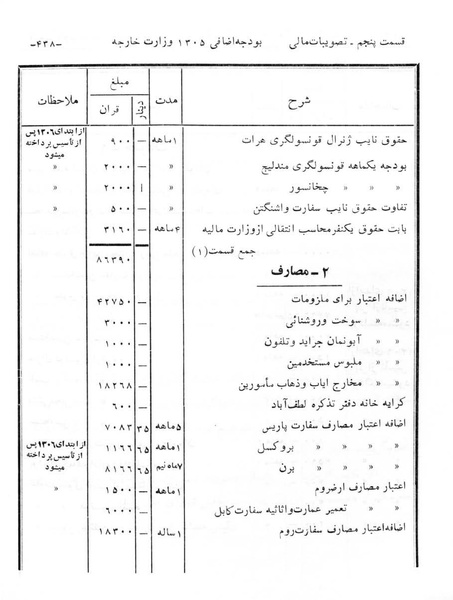 قسمت پنجم ـ تصویبات مالی بودجه اضافی ۱۳۰۵ وزارت خارجه -۴۳۸-
شرح مدت مبلغ ملاحظات
دینار قران
حقوق نایب ژنرال قونسولگری هرات ۱ماهه — ۹۰۰ از ابتدای ۱۳۰۶ پس از تأسیس پرداخته میشود
بودجه یکماهه قونسولگری مندلیج » — ۲۰۰۰ »
» » » چخانسور » ا ۲۰۰۰ »
تفاوت حقوق نایب سفارت واشنگتن » — ۵۰۰ »
بابت حقوق یکنفرمحاسب انتقالی ازوزارت مالیه ۴ماهه — ۳۱۶۰
جمع قسمت (۱) ۸۶۳۹۰
۲ ـ مصارف
اضافه اعتبار برای ملزومات — ۴۲۷۵۰
» » سوخت وروشنائی — ۳۰۰۰
» » آبونمان جراید وتلفون — ۱۰۰۰
» » ملبوس مستخدمین — ۱۰۰۰
» » مخارج ایاب وذهاب مأمورین — ۱۸۲۶۸
کرایه خانه دفتر تذکره لطف‌آباد — ۶۰۰
اضافه اعتبار مصارف سفارت پاریس ۵ماهه ۳۵ ۷۰۸۳
» » » » بروکسل ۱ماهه ۶۵ ۱۱۶۶ از ابتدای ۱۳۰۶ پس از تأسیس پرداخته میشود
» » » » برن ۷ماه نیم ۶۵ ۸۱۶۶
اعتبار مصارف ارضروم ۱ماهه — ۱۵۰۰ »
» » تعمیر عمارت واثاثیه سفارت کابل — ۶۰۰۰
اضافه اعتبار مصارف سفارت روم ۱ساله — ۱۸۳۰۰